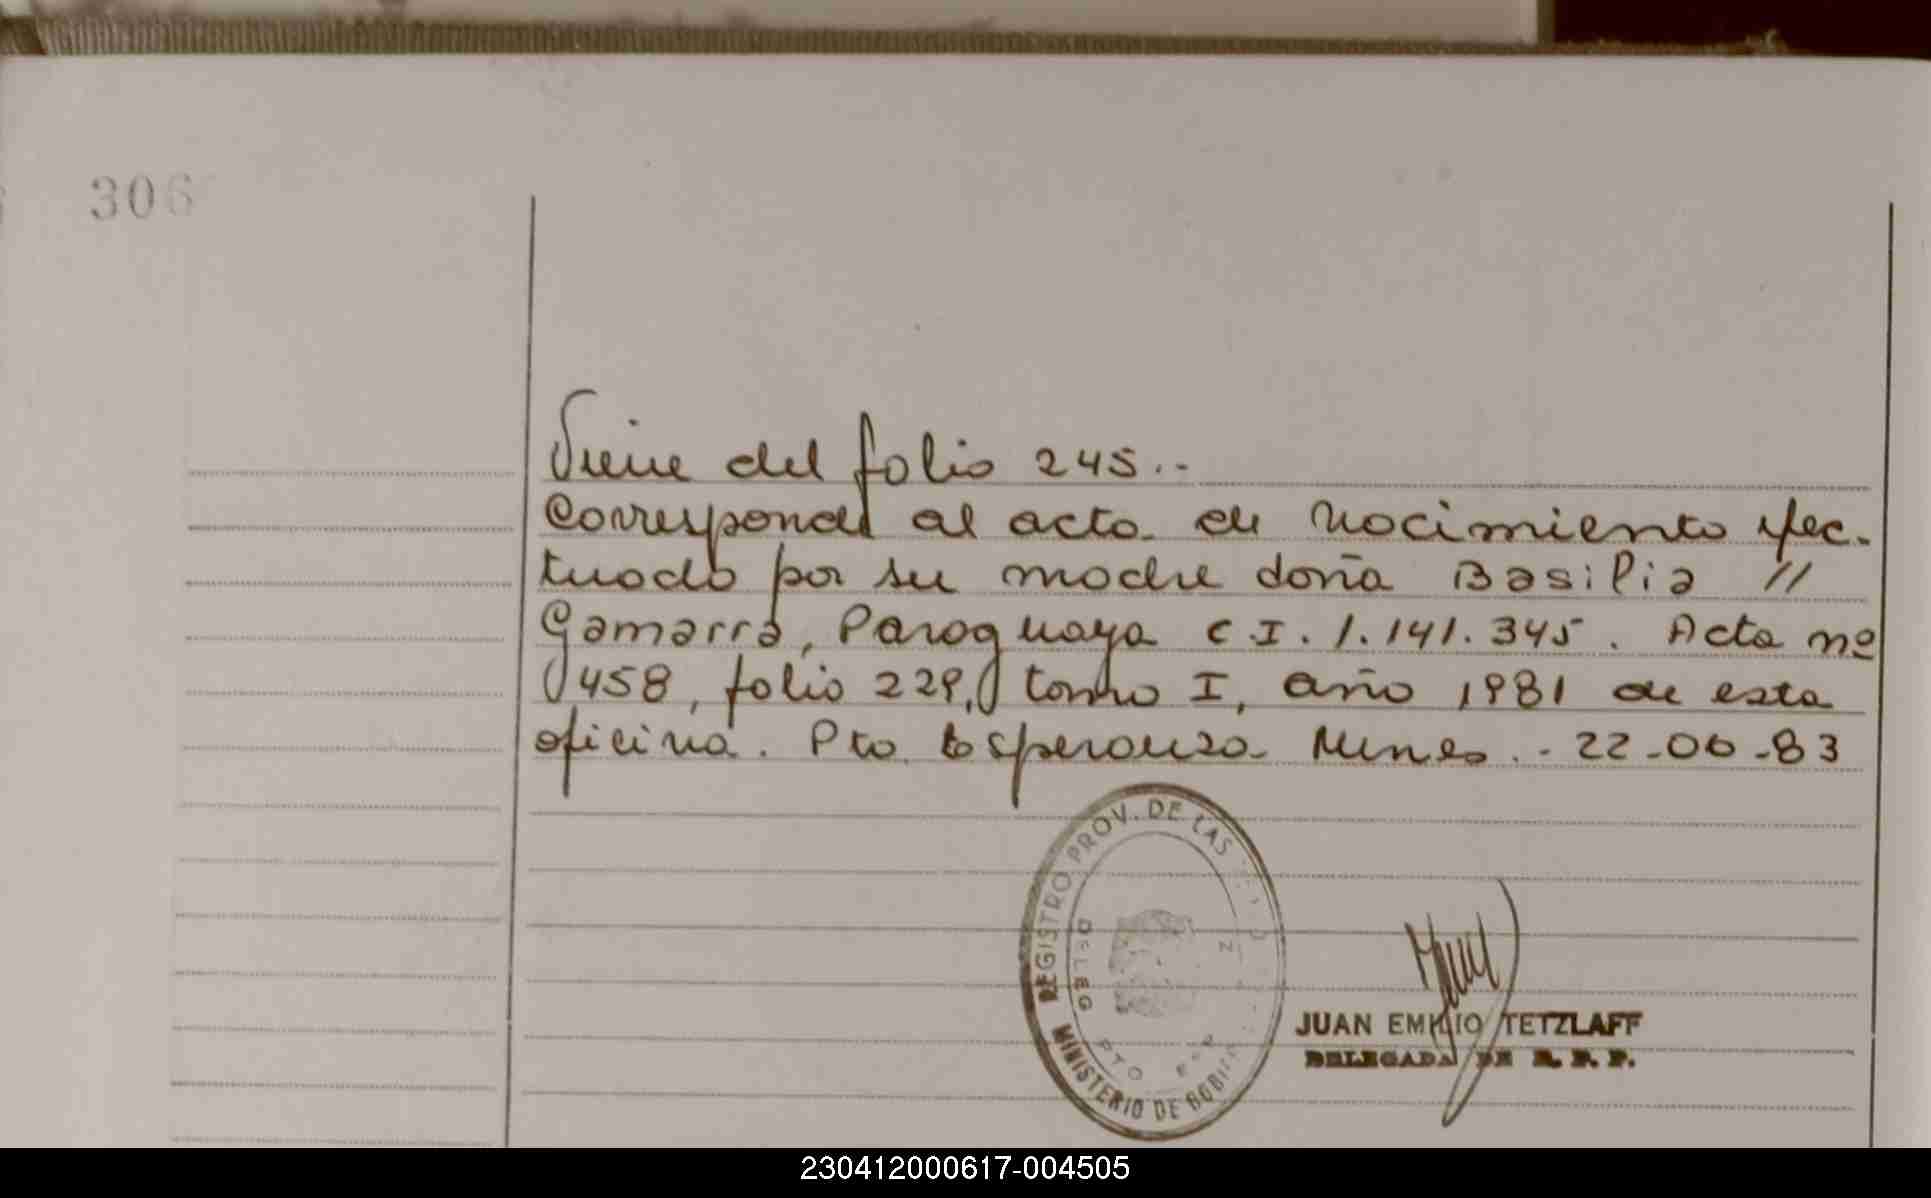 306
Viene del folio 245.-
Corresponde al acta de Nacimiento efec-
tuado por su madre doña Basilia //
Gamarra, Paraguaya C.I. 1.141.345. Acta nº
458, folio 229, tomo I, año 1981 de esta
oficina. Pto. Esperanza Mnes.- 22-06-83
REGISTRO PROV. DE LAS
DELEG PTO ESP
MINISTERIO DE GOBI
JUAN EMILIO TETZLAFF
DELEGADA DE R. P. P.
230412000617-004505